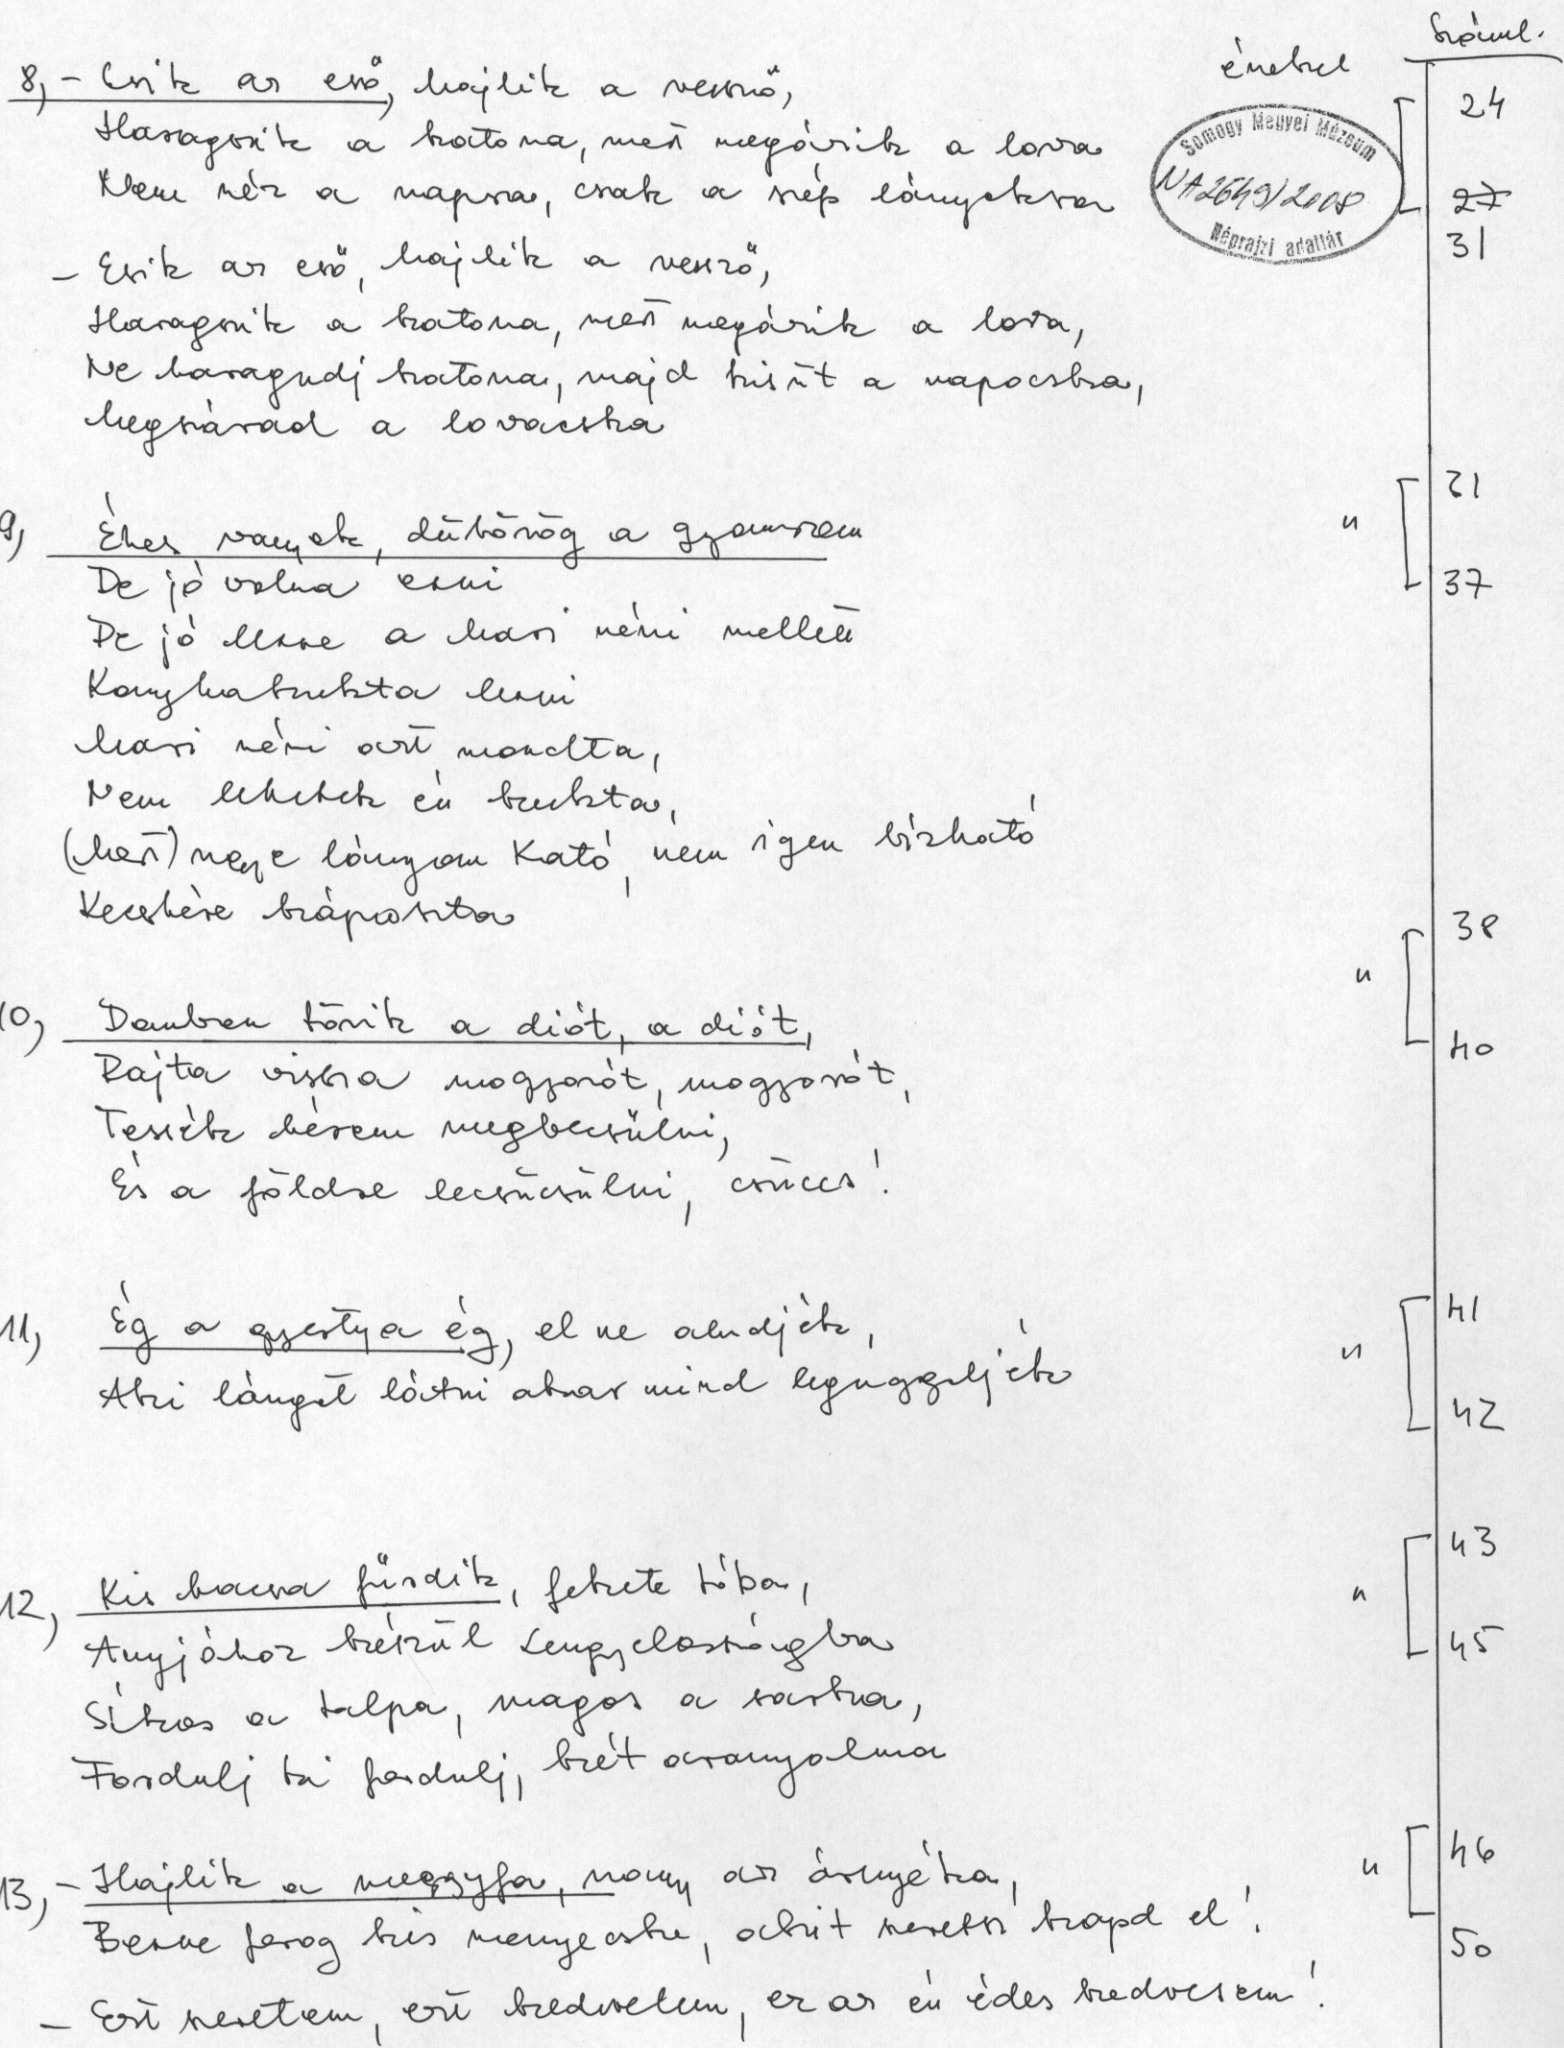 száml.
énekel
8, - Esik az eső, hajlik a vessző, 24
Haragszik a katona, mert megázik a lova
Nem néz a napra, csak a szép lányokra 27
31
Somogy Megyei Múzeum
NA2649/2008
Néprajzi adattár
- Esik az eső, hajlik a vessző,
Haragszik a katona, mert megázik a lova,
Ne haragudj katona, majd kisüt a napocska,
Megszárad a lovacska
9, Éhes vagyok, dübörög a gyomrom " 31
De jó volna enni 37
De jó lenne a Mari néni mellett
Konyhakukta lenni
Mari néni azt mondta,
Nem lehetek én kukta,
(Mert) nagy e lányom Kató, nem igen bízható
Kecskére káposzta
" 38
10, Domban törik a diót, a diót,
Rajta vissza mogyorót, mogyorót, 40
Tessék kérem megbecsülni,
És a földre lecsücsülni, csüccs!
11, Ég a gyertya ég, el ne aludjék, " 41
Aki lángot látni akar mind leguggoljék 42
12, Kis kacsa fürdik, fekete tóba, " 43
Anyjához készül Lengyelországba 45
Síkos a talpa, magos a sarka,
Fordulj ki fordulj, két aranyalma
13, - Hajlik a meggyfa, nagy az árnyéka, " 46
Benne forog kis menyecske, akit szeretsz kapd el! 50
- Ezt szeretem, ezt kedvelem, ez az én édes kedvesem!